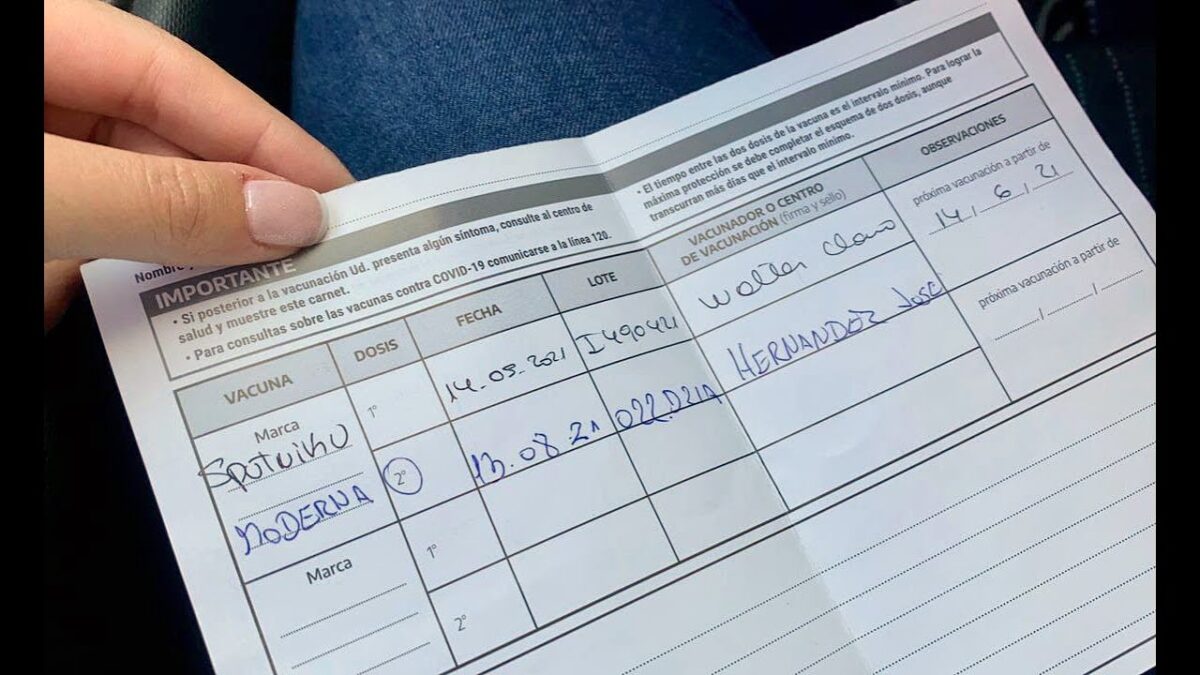 Nombre
IMPORTANTE
• Si posterior a la vacunación Ud. presenta algún síntoma, consulte al centro de
salud y muestre este carnet.
• Para consultas sobre las vacunas contra COVID-19 comunicarse a la línea 120.
• El tiempo entre las dos dosis de la vacuna es el intervalo mínimo. Para lograr la
máxima protección se debe completar el esquema de dos dosis, aunque
transcurran más días que el intervalo mínimo.
VACUNA DOSIS FECHA LOTE VACUNADOR O CENTRO
DE VACUNACIÓN (firma y sello) OBSERVACIONES
Marca
SPUTNIK V 1º 14.05.2021 I490421 Walter próxima vacunación a partir de
14 / 6 / 21
MODERNA 2º 13.08.21 022D21A HERNANDEZ José próxima vacunación a partir de
/ /
Marca
1º
2º